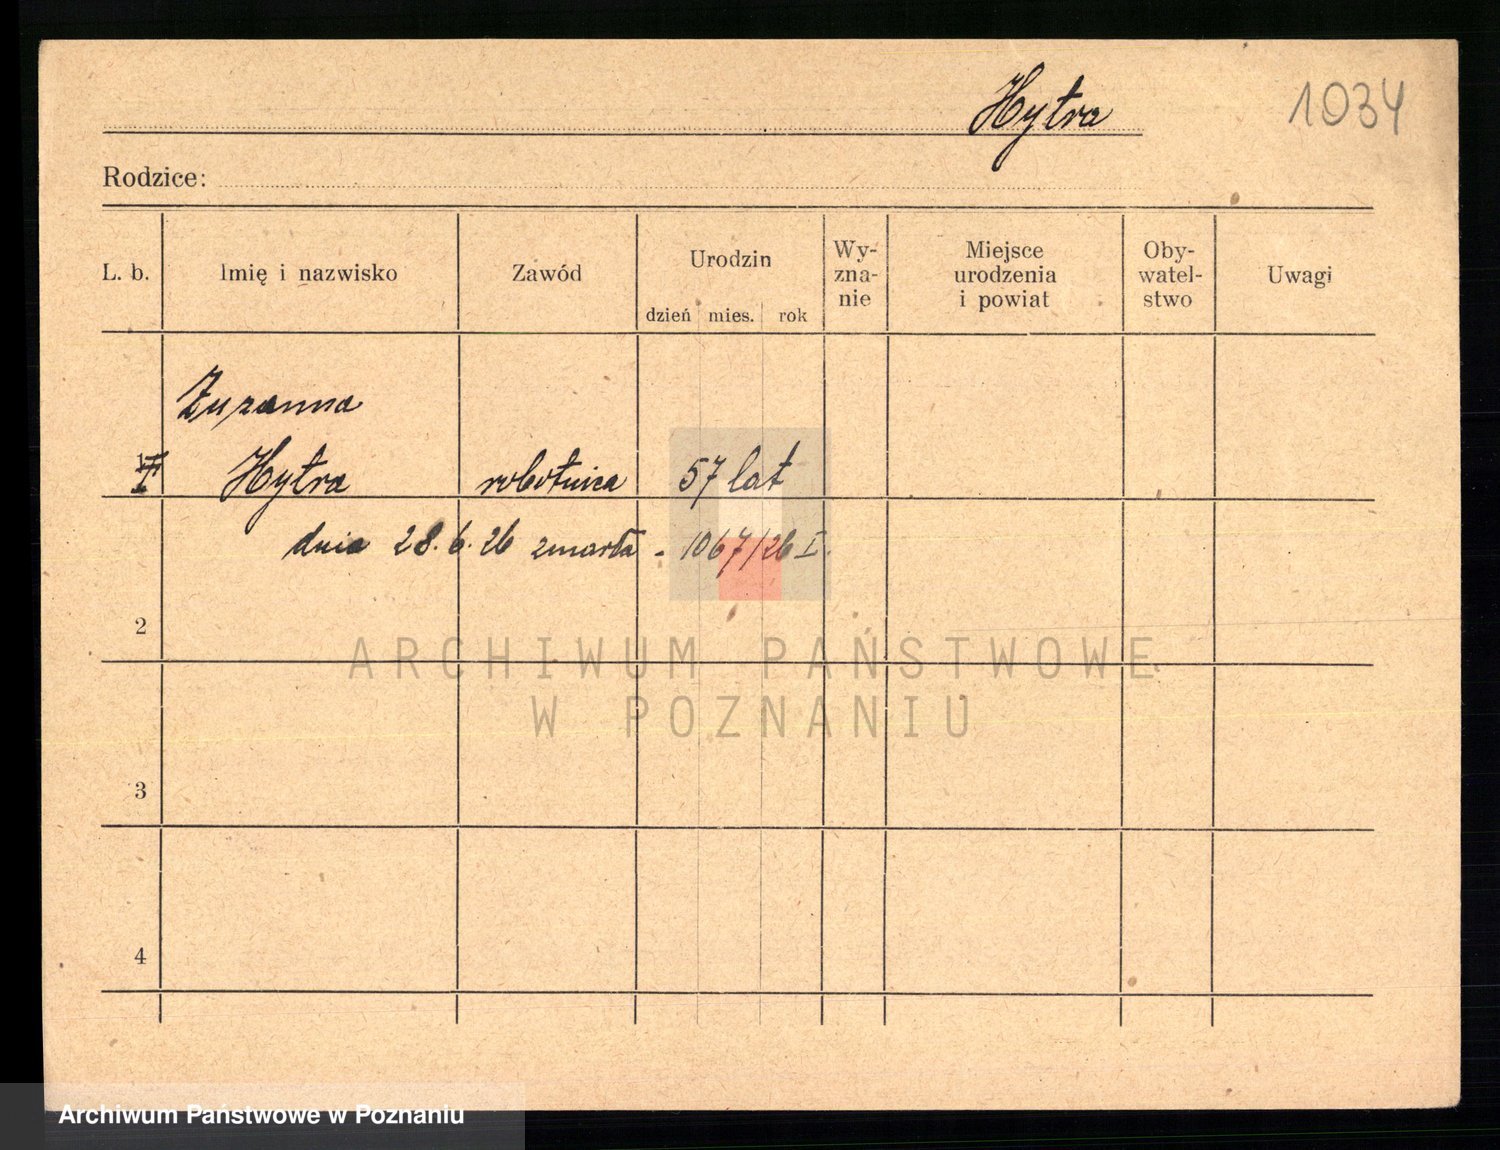 Hytra
1034
Rodzice:
L. b. Imię i nazwisko Zawód Urodzin dzień mies. rok Wy-zna-nie Miejsce urodzenia i powiat Oby-watel-stwo Uwagi
Zuzanna
1 Hytra robotnica 57 lat
dnia 28.6.26 zmarła - 1067/26 I.
2
ARCHIWUM PAŃSTWOWE
W POZNANIU
3
4
Archiwum Państwowe w Poznaniu